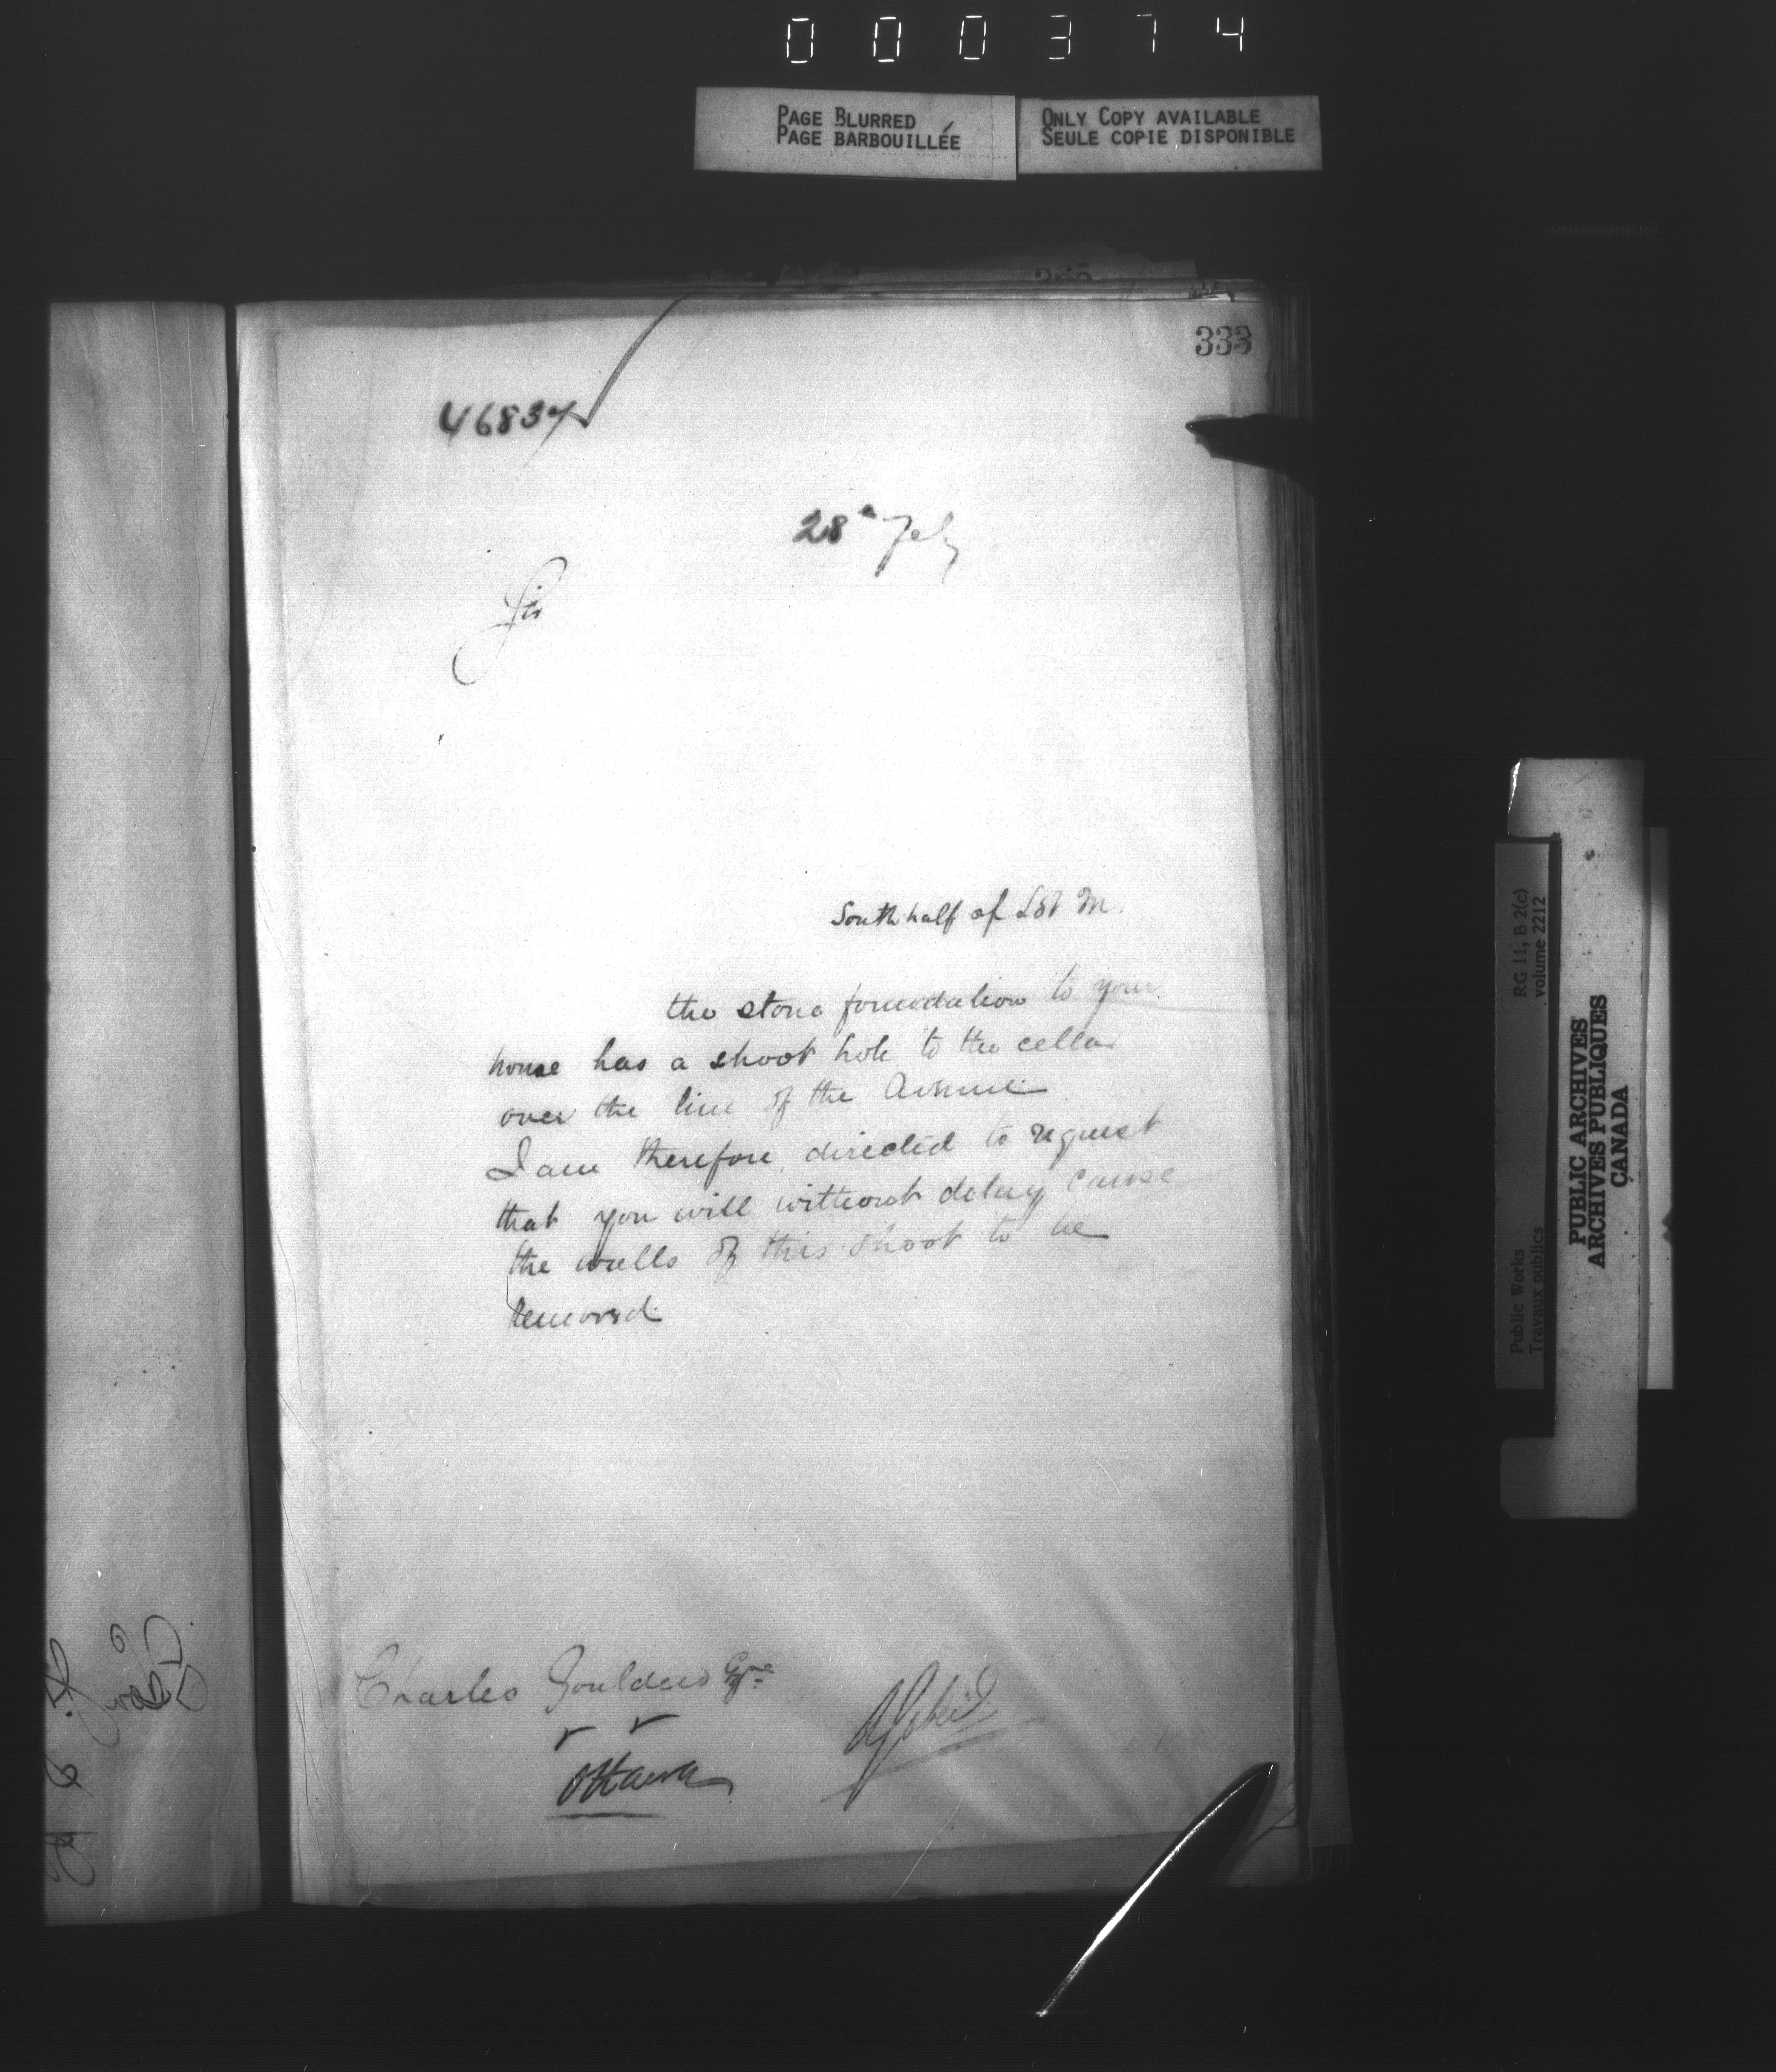 000374
PAGE BLURRED
PAGE BARBOUILLÉE
ONLY COPY AVAILABLE
SEULE COPIE DISPONIBLE
333
46837
28 Feby
Sir
South half of Lot M.
the stone foundation to your
house has a shoot hole to the cellar
over the line of the Avenue
I am therefore, directed to request
that you will without delay cause
the walls of this shoot to be
removed
Charles
Ottawa
RG 11, B 2(c)
volume 2212
Public Works
Travaux publics
PUBLIC ARCHIVES
ARCHIVES PUBLIQUES
CANADA